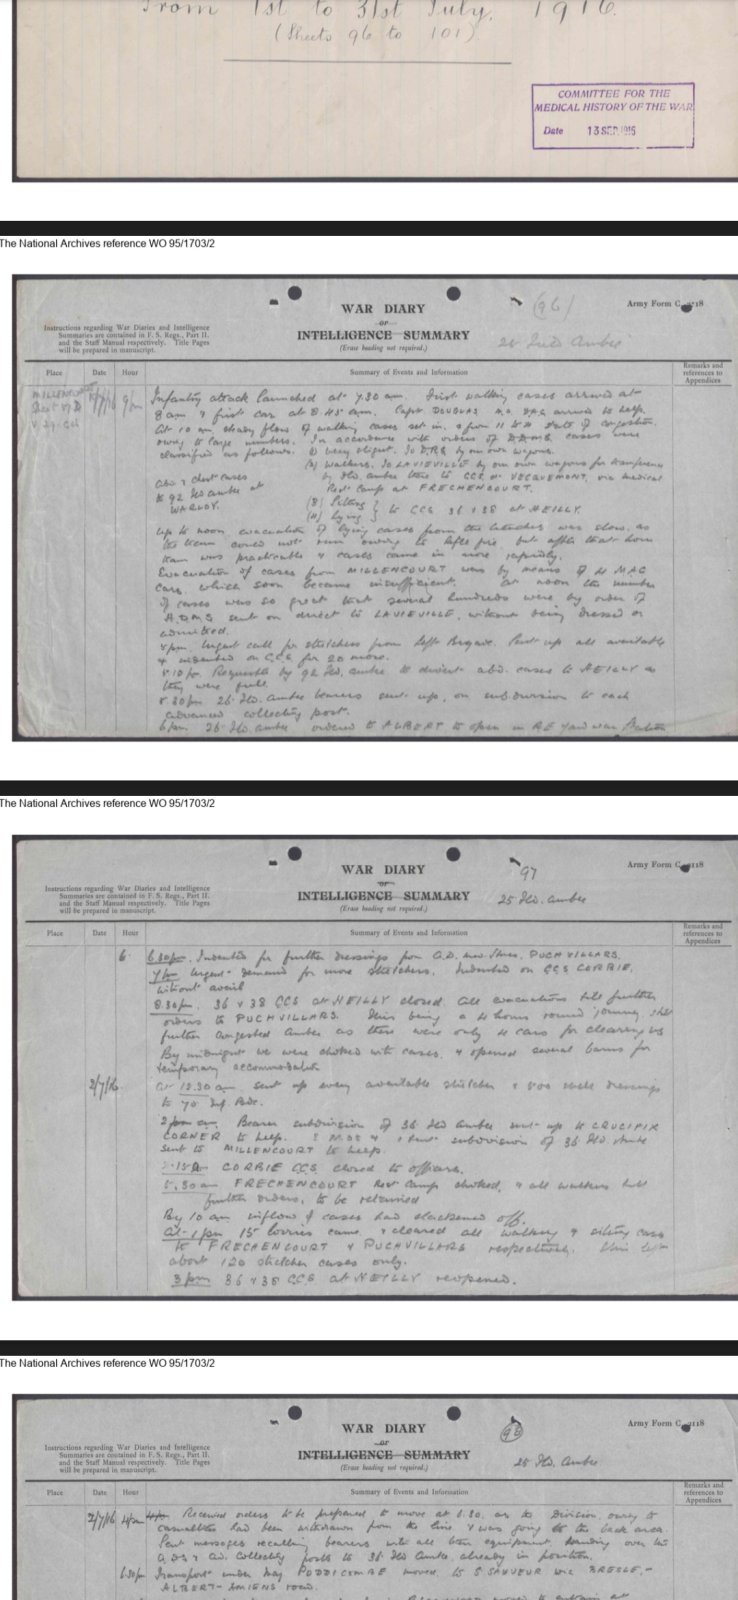 From 1st to 31st July, 1916.
(Sheets 96 to 101)
COMMITTEE FOR THE
MEDICAL HISTORY OF THE WAR
Date 13 SEP 1916
The National Archives reference WO 95/1703/2
(96)
Army Form C. 2118
WAR DIARY
or
INTELLIGENCE SUMMARY
(Erase heading not required.)
25 Fld Ambce
Instructions regarding War Diaries and Intelligence
Summaries are contained in F. S. Regs., Part II.
and the Staff Manual respectively. Title Pages
will be prepared in manuscript.
Place Date Hour Summary of Events and Information Remarks and
references to
Appendices
MILLENCOURT 1/7/16 9pm Infantry attack launched at 7.30 am. First walking cases arrived at
8 am & first car at 8.45 am. Capt DOUGLAS arrived to help.
At 10 am steady flow of walking cases set in, & from 11 to state of congestion
owing to large numbers. In accordance with orders of D.D.M.S. cases were
classified as follows. (1) Very slight. To D.R.S by our own wagons.
(2) Walkers. To LAVIEVILLE by our own wagons for transference
by Fld. ambce there to CCS at VECQUEMONT, via medical
Rest Camp at FRECHENCOURT.
Abd & chest cases
to 92 Fld ambce at
WARLOY.
(3) Sitting
(4) Lying } to CCS 36 & 38 at HEILLY.
Up to noon, evacuation of lying cases from the trenches was slow, as
the tram could not run owing to rifle fire, but after that hour
tram was practicable & cases came in more rapidly.
Evacuation of cases from MILLENCOURT was by means of 4 MAC
cars, which soon became insufficient. At noon the number
of cases was so great that several hundreds were by order of
A.D.M.S sent on direct to LAVIEVILLE, without being dressed or
admitted.
5pm. Urgent call for stretchers from left Brigade. Sent up all available
& indented on CCS for 20 more.
5.10pm. Requested by 92 Fld. ambce to divert abd. cases to HEILLY as
they were full.
5.30pm 26 Fld. ambce bearers sent up, one subdivision to each
advanced collecting post.
6pm 26 Fld. ambce ordered to ALBERT to open in RE yard near Station
The National Archives reference WO 95/1703/2
97
Army Form C. 2118
WAR DIARY
or
INTELLIGENCE SUMMARY
(Erase heading not required.)
25 Fld. Ambce
Instructions regarding War Diaries and Intelligence
Summaries are contained in F. S. Regs., Part II.
and the Staff Manual respectively. Title Pages
will be prepared in manuscript.
Place Date Hour Summary of Events and Information Remarks and
references to
Appendices
6 6.30pm. Indented for further dressings from A.D. Med Stores, PUCHVILLARS.
7pm Urgent demand for more stretchers. Indented on CCS CORBIE,
without avail
8.30pm. 36 & 38 CCS at HEILLY closed. All evacuations till further
orders to PUCHVILLARS. This being a 4 hours round journey, still
further congested Ambce as there were only 4 cars for clearing us
By midnight we were choked with cases, & opened several barns for
temporary accommodation
2/7/16 At 12.30 am sent up every available stretcher & 500 shell dressings
to 70 Inf Bde.
2 am. Bearer subdivision of 36 Fld Ambce sent up to CRUCIFIX
CORNER to help. 2 M.Os & 1 tent subdivision of 36 Fld Ambce
sent to MILLENCOURT to help.
CORBIE CCS closed to officers.
5.30 am FRECHENCOURT Rest Camp choked, & all walkers till
further orders, to be retained
By 10 am inflow of cases had slackened off.
At 1 pm 15 lorries came, & cleared all walking & sitting cases
to FRECHENCOURT & PUCHVILLARS respectively. This left
about 120 stretcher cases only.
3 pm 36 & 38 CCS at HEILLY reopened.
The National Archives reference WO 95/1703/2
98
Army Form C. 2118
WAR DIARY
or
INTELLIGENCE SUMMARY
(Erase heading not required.)
25 Fld. Ambce
Instructions regarding War Diaries and Intelligence
Summaries are contained in F. S. Regs., Part II.
and the Staff Manual respectively. Title Pages
will be prepared in manuscript.
Place Date Hour Summary of Events and Information Remarks and
references to
Appendices
2/7/16 4pm Received orders to be prepared to move at 6.30, as the Division, owing to
casualties had been withdrawn from the line & was going to the back area.
Sent messages recalling bearers with all their equipment, handing over the
A.D.S & Ad. Collecting posts to 36 Fld Ambce, already in position.
6.30pm Transport under May PODDICOMBE moved to S SAUVEUR via BRESLE,-
ALBERT-AMIENS road.